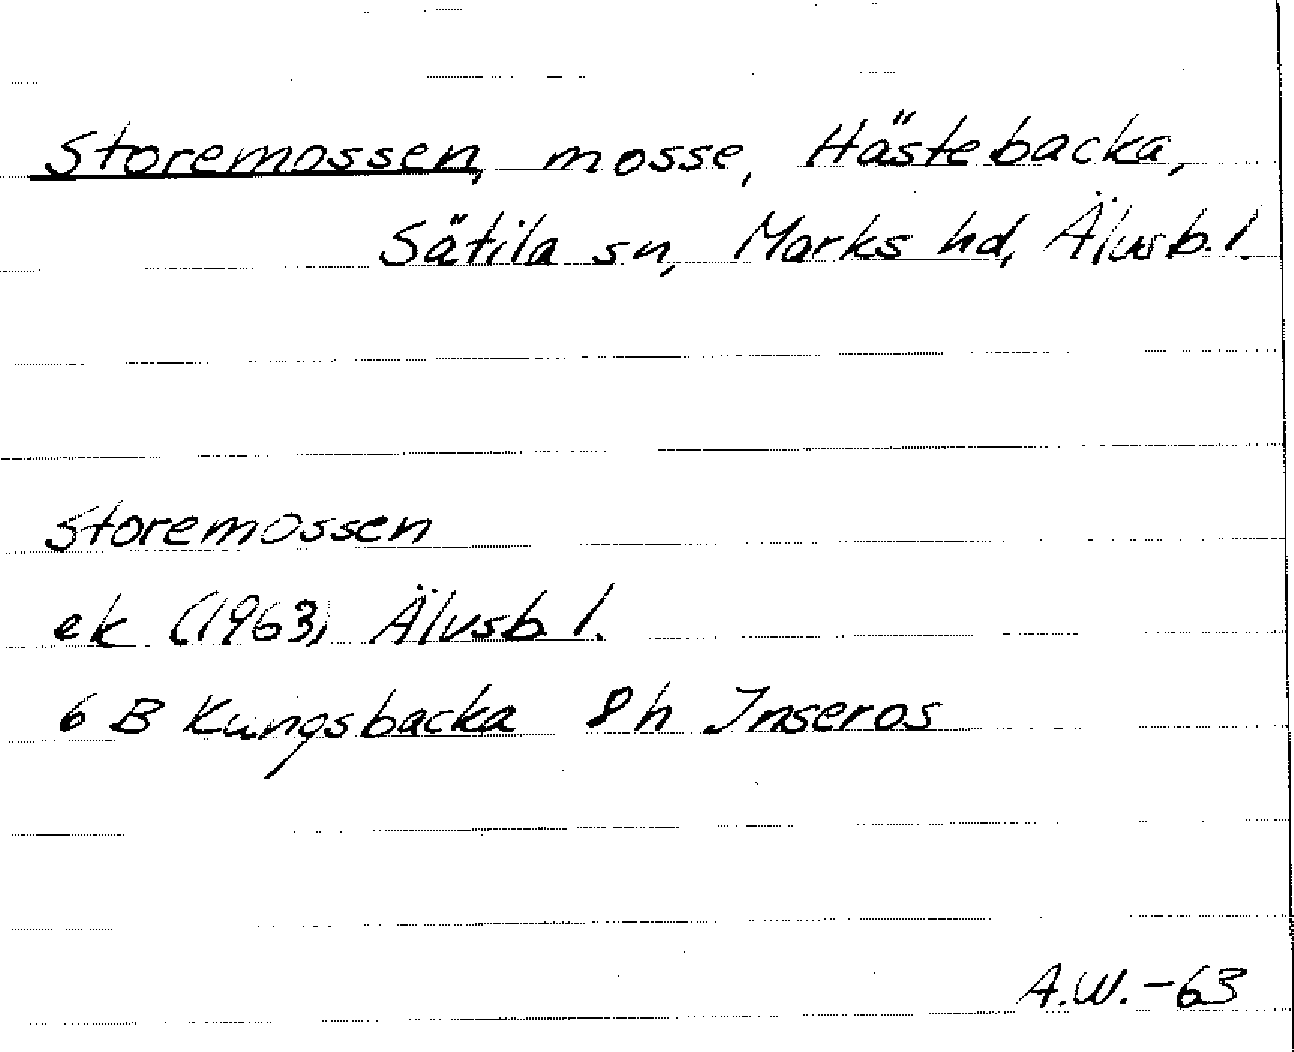 Storemossen, mosse, Hästebacka,
Sätila sn, Marks hd, Älvsb. l.
Storemossen
ek (1963) Älvsb l.
6 B Kungsbacka 8h Inseros
A.W. -63